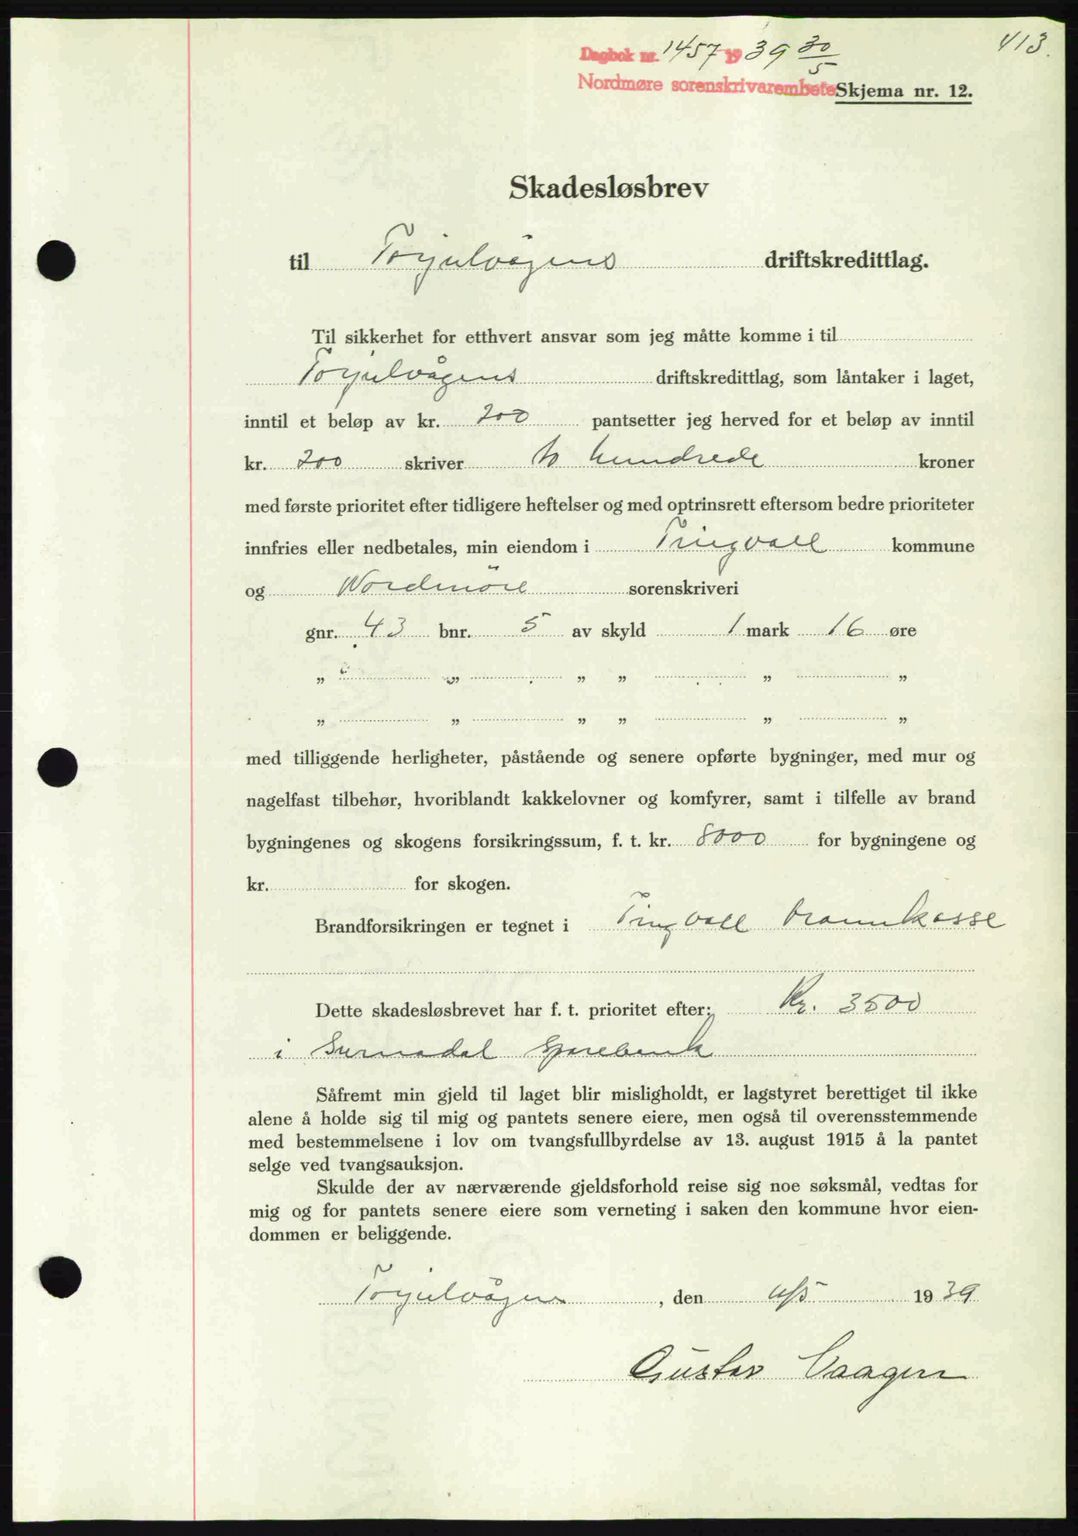 413.
Dagbok nr. 1457 1939 30/5
Nordmøre sorenskrivarembete Skjema nr. 12.
Skadesløsbrev
til Torjulvågens driftskredittlag.
Til sikkerhet for etthvert ansvar som jeg måtte komme i til
Torjulvågens driftskredittlag, som låntaker i laget,
inntil et beløp av kr. 200 pantsetter jeg herved for et beløp av inntil
kr. 200 skriver to hundrede kroner
med første prioritet efter tidligere heftelser og med optrinsrett eftersom bedre prioriteter
innfries eller nedbetales, min eiendom i Tingvoll kommune
og Nordmöre sorenskriveri
gnr. 43 bnr. 5 av skyld 1 mark 16 øre
„ „ „ „ „ „
„ „ „ „ „ „
med tilliggende herligheter, påstående og senere opførte bygninger, med mur og
nagelfast tilbehør, hvoriblandt kakkelovner og komfyrer, samt i tilfelle av brand
bygningenes og skogens forsikringssum, f. t. kr. 8000 for bygningene og
kr. for skogen.
Brandforsikringen er tegnet i Tingvoll brannkasse
Dette skadesløsbrevet har f. t. prioritet efter: Kr. 3500
i Surnadal Sparebank
Såfremt min gjeld til laget blir misligholdt, er lagstyret berettiget til ikke
alene å holde sig til mig og pantets senere eiere, men også til overensstemmende
med bestemmelsene i lov om tvangsfullbyrdelse av 13. august 1915 å la pantet
selge ved tvangsauksjon.
Skulde der av nærværende gjeldsforhold reise sig noe søksmål, vedtas for
mig og for pantets senere eiere som verneting i saken den kommune hvor eien-
dommen er beliggende.
Torjulvågen, den 1939
Gustav Vaagen